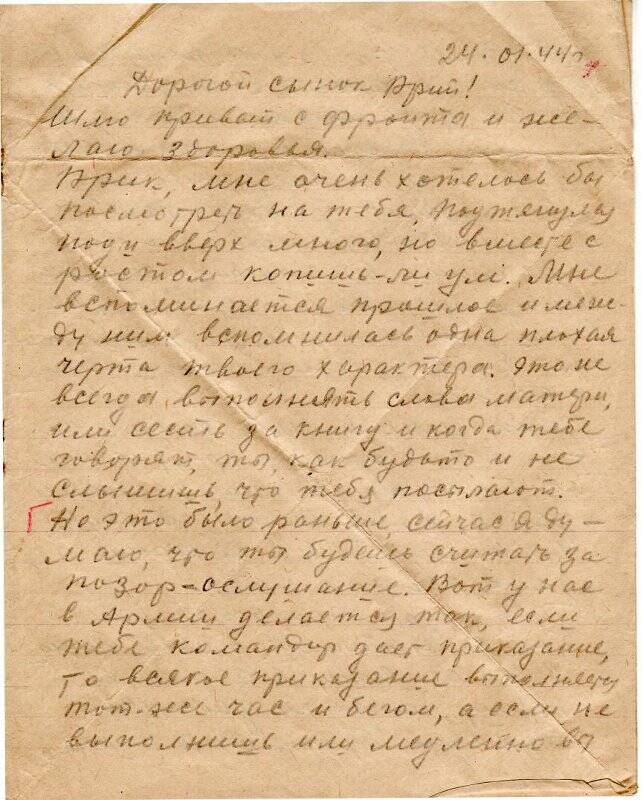 24.01.44г
Дорогой сынок Арик!
Шлю привет с фронта и же-
лаю здоровья.
Арик, мне очень хотелось бы
посмотреть на тебя, подтянулся
поди вверх много, но вместе с
ростом копишь-ли ум. Мне
вспоминается прошлое и меж-
ду ним вспомнилась одна плохая
черта твоего характера. Это не
всегда выполнять слова матери,
или сесть за книгу и когда тебе
говорят, ты, как будьто и не
слышишь, что тебя посылают.
Но это было раньше, сейчас я ду-
маю, что ты будешь считать за
позор-ослушание. Вот у нас
в Армии делается так, если
тебе командир дает приказание,
то всякое приказание выполняется
тот-же час и бегом, а если не
выполнишь или медленно вы